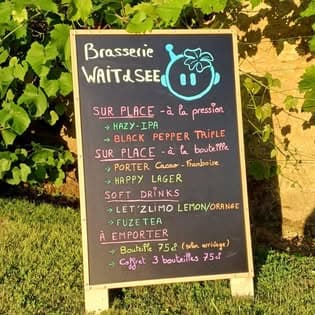 Brasserie
WAIT & SEE
SUR PLACE - à la pression
→ HAZY-IPA
→ BLACK PEPPER TRIPLE
SUR PLACE - à la bouteille
→ PORTER Cacao - Framboise
→ HAPPY LAGER
SOFT DRINKS
→ LET'ZLIMO LEMON/ORANGE
→ FUZE TEA
À EMPORTER
→ Bouteille 75cl (selon arrivage)
→ Coffret 3 bouteilles 75cl